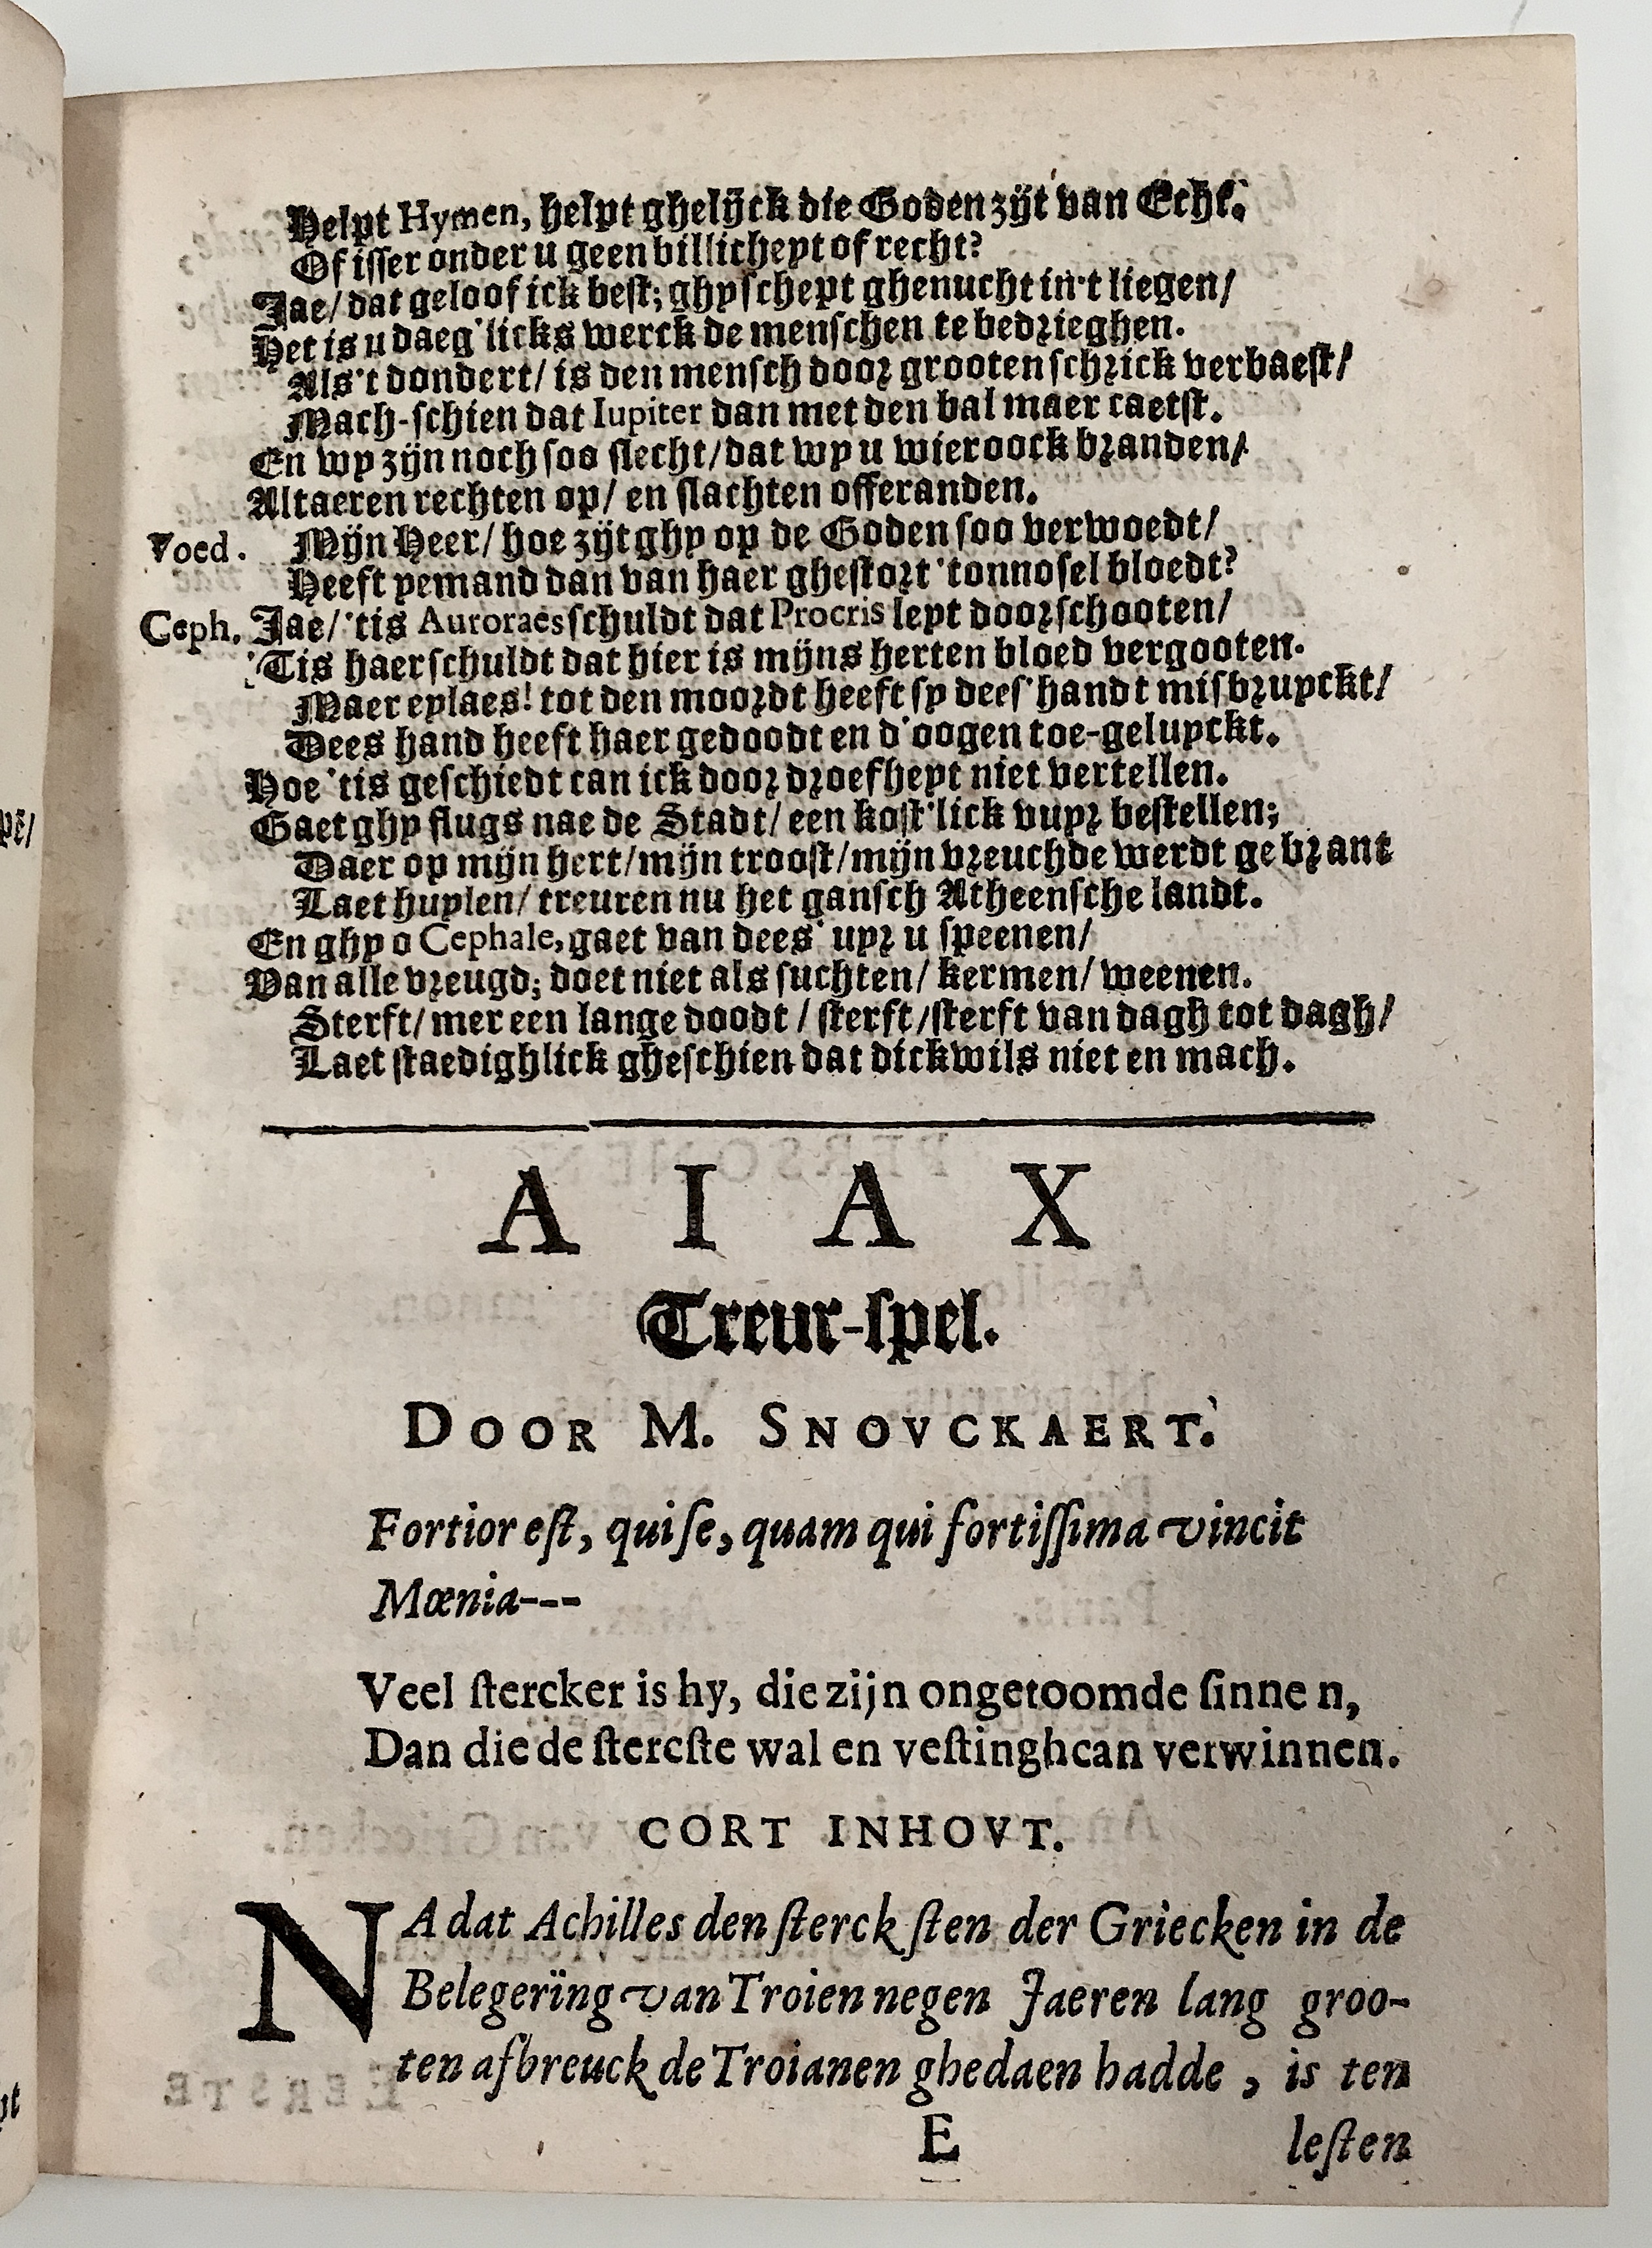 Helpt Hymen, helpt ghelijck die Goden zijt van Echt.
Of isser onder u geen billicheyt of recht?
Jae/ dat geloof ick best; ghy schept ghenucht in't liegen/
Het is u daeg'licks werck de menschen te bedrieghen.
Als't dondert/ is den mensch door grooten schrick verbaest/
Mach-schien dat Iupiter dan met den bal maer caetst.
En wy zijn noch soo slecht/ dat wy u wieroock branden/
Altaeren rechten op/ en slachten offeranden.
Voed. Mijn Heer/ hoe zijt ghy op de Goden soo verwoedt/
Heeft yemand dan van haer ghestort 'tonnosel bloedt?
Ceph. Jae/ 'tis Auroraes schuldt dat Procris leyt doorschooten/
'Tis haer schuldt dat hier is mijns herten bloed vergooten.
Maer eylaes! tot den moordt heeft sy dees' handt misbruyckt/
Dees hand heeft haer gedoodt en d'oogen toe-geluyckt.
Hoe 'tis geschiedt can ick door droefheyt niet vertellen.
Gaet ghy flugs nae de Stadt/ een kost'lick vuyr bestellen;
Daer op mijn hert/ mijn troost/ mijn vreuchde werdt gebrant
Laet huylen/ treuren nu het gansch Atheensche landt.
En ghy o Cephale, gaet van dees' uyr u speenen/
Van alle vreugd; doet niet als suchten/ kermen/ weenen.
Sterft/ mer een lange doodt/ sterft/ sterft van dagh tot dagh/
Laet staedighlick gheschien dat dickwils niet en mach.
AIAX
Treur-spel.
DOOR M. SNOVCKAERT.
Fortior est, qui se, quam qui fortissima vincit
Mœnia---
Veel stercker is hy, die zijn ongetoomde sinnen,
Dan die de stercste wal en vestingh can verwinnen.
CORT INHOVT.
NA dat Achilles den stercksten der Griecken in de
Belegerïng van Troien negen Jaeren lang groo-
ten afbreuck de Troianen ghedaen hadde, is ten
E lesten